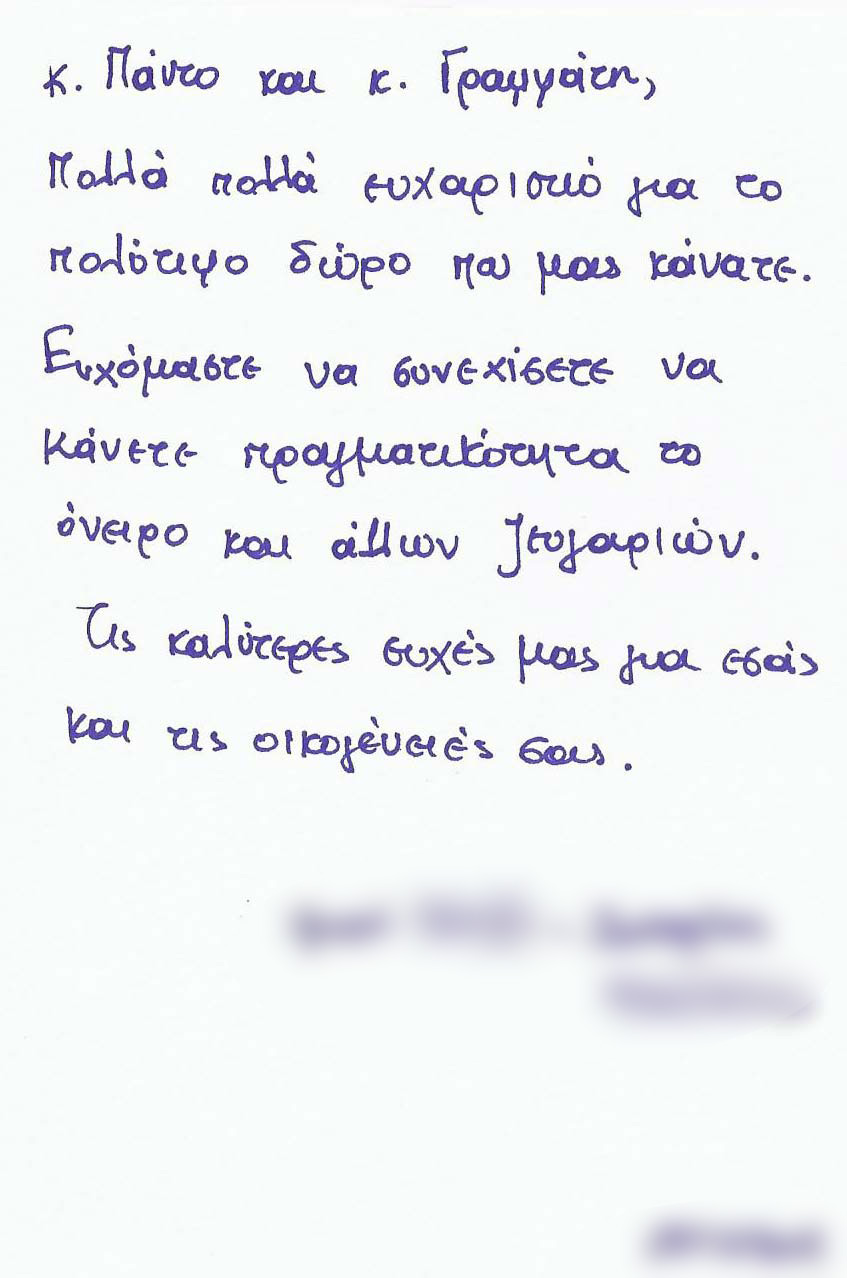 κ. Πάντο και κ. Γραμμάτη,
Πολλά πολλά ευχαριστώ για το
πολύτιμο δώρο που μας κάνατε.
Ευχόμαστε να συνεχίσετε να
κάνετε πραγματικότητα το
όνειρο και άλλων ζευγαριών.
Τις καλύτερες ευχές μας για εσάς
και τις οικογένειές σας.